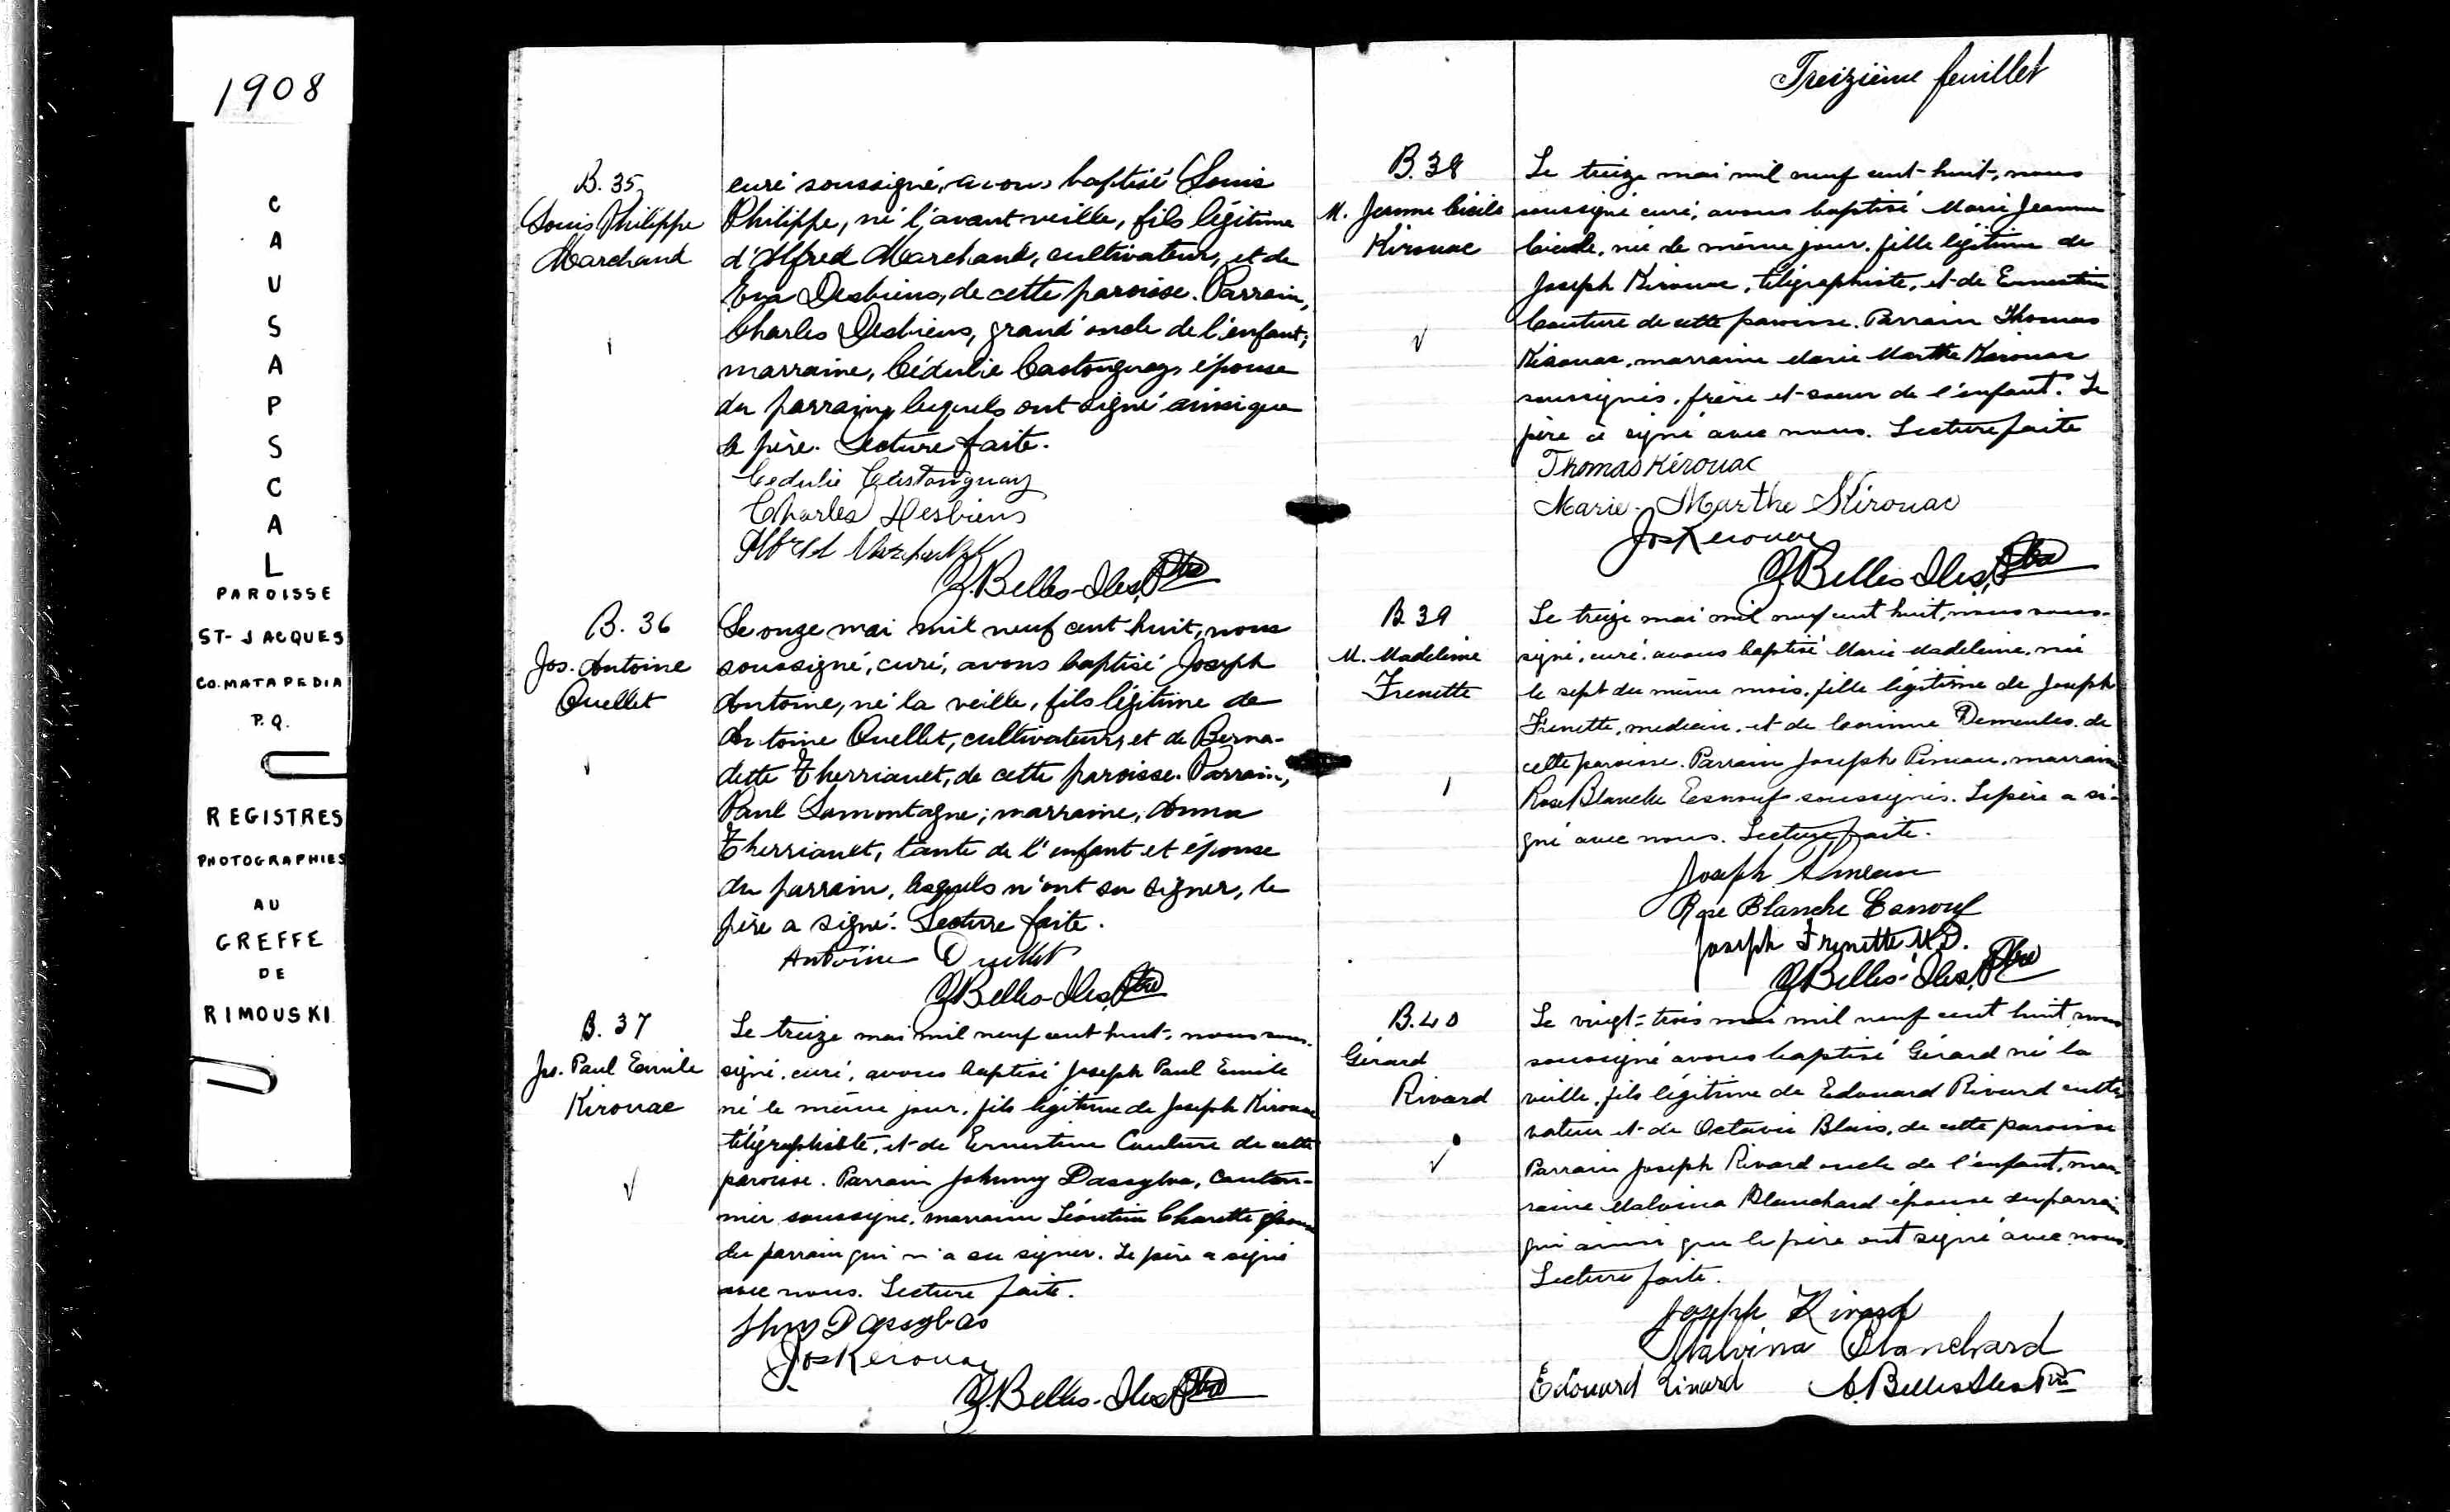 1908
CAUSAPSCAL
PAROISSE
ST-JACQUES
CO. MATAPEDIA
P.Q.
REGISTRES
PHOTOGRAPHIES
AU
GREFFE
DE
RIMOUSKI
B. 35
Louis Philippe
Marchand
curé soussigné, avons baptisé Louis
Philippe, né l'avant veille, fils légitime
d'Alfred Marchand, cultivateur, et de
Eva Desbiens, de cette paroisse. Parrain,
Charles Desbiens, grand'oncle de l'enfant;
marraine, Cédulie Castonguay, épouse
du parrain, lesquels ont signé ainsi que
le père. Lecture faite.
Cedulie Castonguay
Charles Desbiens
J. Belles-Isles, Ptre
B. 36
Jos. Antoine
Ouellet
Le onze mai mil neuf cent huit, nous
soussigné, curé, avons baptisé Joseph
Antoine, né la veille, fils légitime de
Antoine Ouellet, cultivateur, et de Berna-
dette Therriault, de cette paroisse. Parrain,
Paul Lamontagne; marraine, Anna
Therriault, tante de l'enfant et épouse
du parrain, lesquels n'ont su signer, le
père a signé. Lecture faite.
Antoine Ouellet
J. Belles-Isles, Ptre
B. 37
Jos. Paul Emile
Kirouac
Le treize mai mil neuf cent huit, nous sous-
signé, curé, avons baptisé Joseph Paul Emile
né le même jour, fils légitime de Joseph Kirouac
télégraphiste, et de Ernestine Couture de cette
paroisse. Parrain Johnny Dassylva, canton-
nier soussigné, marraine Léontine Charette épouse
du parrain qui n'a su signer. Le père a signé
avec nous. Lecture faite.
Jhny Dassylva
Jos Kerouac
J. Belles-Isles Ptre
Treizième feuillet
B. 38
M. Jeanne Cécile
Kirouac
Le treize mai mil neuf cent-huit, nous
soussigné curé, avons baptisé Marie Jeanne
Cécile, née le même jour, fille légitime de
Joseph Kirouac, télégraphiste, et de Ernestine
Couture de cette paroisse. Parrain Thomas
Kirouac, marraine Marie Marthe Kirouac
soussignés, frère et soeur de l'enfant. Le
père a signé avec nous. Lecture faite
Thomas Kérouac
Marie-Marthe Kirouac
Jos Kerouac
J. Belles-Isles, Ptre
B. 39
M. Madeleine
Frenette
Le treize mai mil neuf cent huit, nous sous-
signé, curé, avons baptisé Marie Madeleine, née
le sept du même mois, fille légitime de Joseph
Frenette, medecin, et de Corinne Demeules de
cette paroisse. Parrain Joseph Pineau, marraine
Rose Blanche Esnouf soussignés. Le père a si-
gné avec nous. Lecture faite.
Joseph Pineau
Rose Blanche Esnouf
Joseph Frenette M.D.
J. Belles-Isles, Ptre
B. 40
Gérard
Rivard
Le vingt-trois mai mil neuf cent huit nous
soussigné avons baptisé Gérard né la
veille, fils légitime de Edouard Rivard culti-
vateur et de Octavie Blais, de cette paroisse
Parrain Joseph Rivard oncle de l'enfant, mar-
raine Malvina Blanchard épouse du parrain
qui ainsi que le père ont signé avec nous.
Lecture faite.
Joseph Rivard
Malvina Blanchard
Edouard Rivard A. Belles Isles Ptre